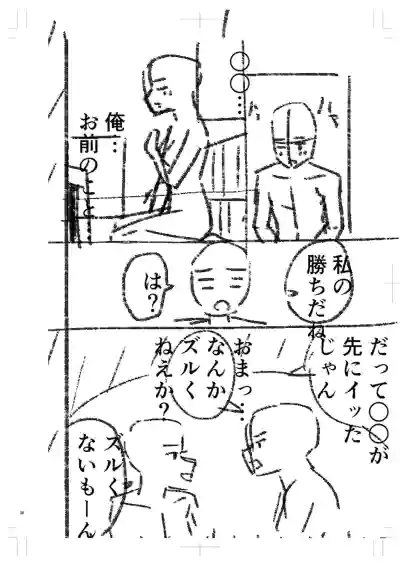 〇〇…
俺…
お前のこと
私の
勝ちだね
は?
だって〇〇が
先にイッた
じゃん
おまっ…
なんか
ズルく
ねえか?
ズルく
ないもーん